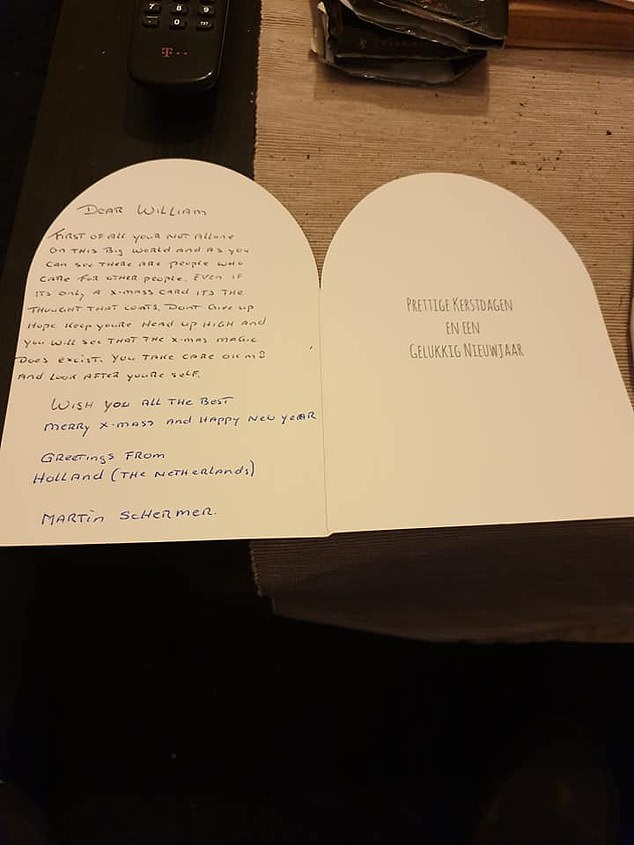 7 8 9
0
T
DEAR WILLIAM
FIRST OF ALL YOUR NOT ALLONE
ON THIS BIG WORLD AND AS YOU
CAN SEE THERE ARE PEOPLE WHO
CARE FOR OTHER PEOPLE. EVEN IF
ITS ONLY A X-MASS CARD ITS THE
THOUGHT THAT COATS. DONT GIVE UP
HOPE KEEP YOURE HEAD UP HIGH AND
YOU WILL SEE THAT THE X-MAS MAGIC
DOES EXCIST. YOU TAKE CARE
AND LOOK AFTER YOURE SELF.
WISH YOU ALL THE BEST
MERRY X-MASS AND HAPPY NEW YEAR
GREETINGS FROM
HOLLAND (THE NETHERLANDS)
MARTIN SCHERMER.
PRETTIGE KERSTDAGEN
EN EEN
GELUKKIG NIEUWJAAR